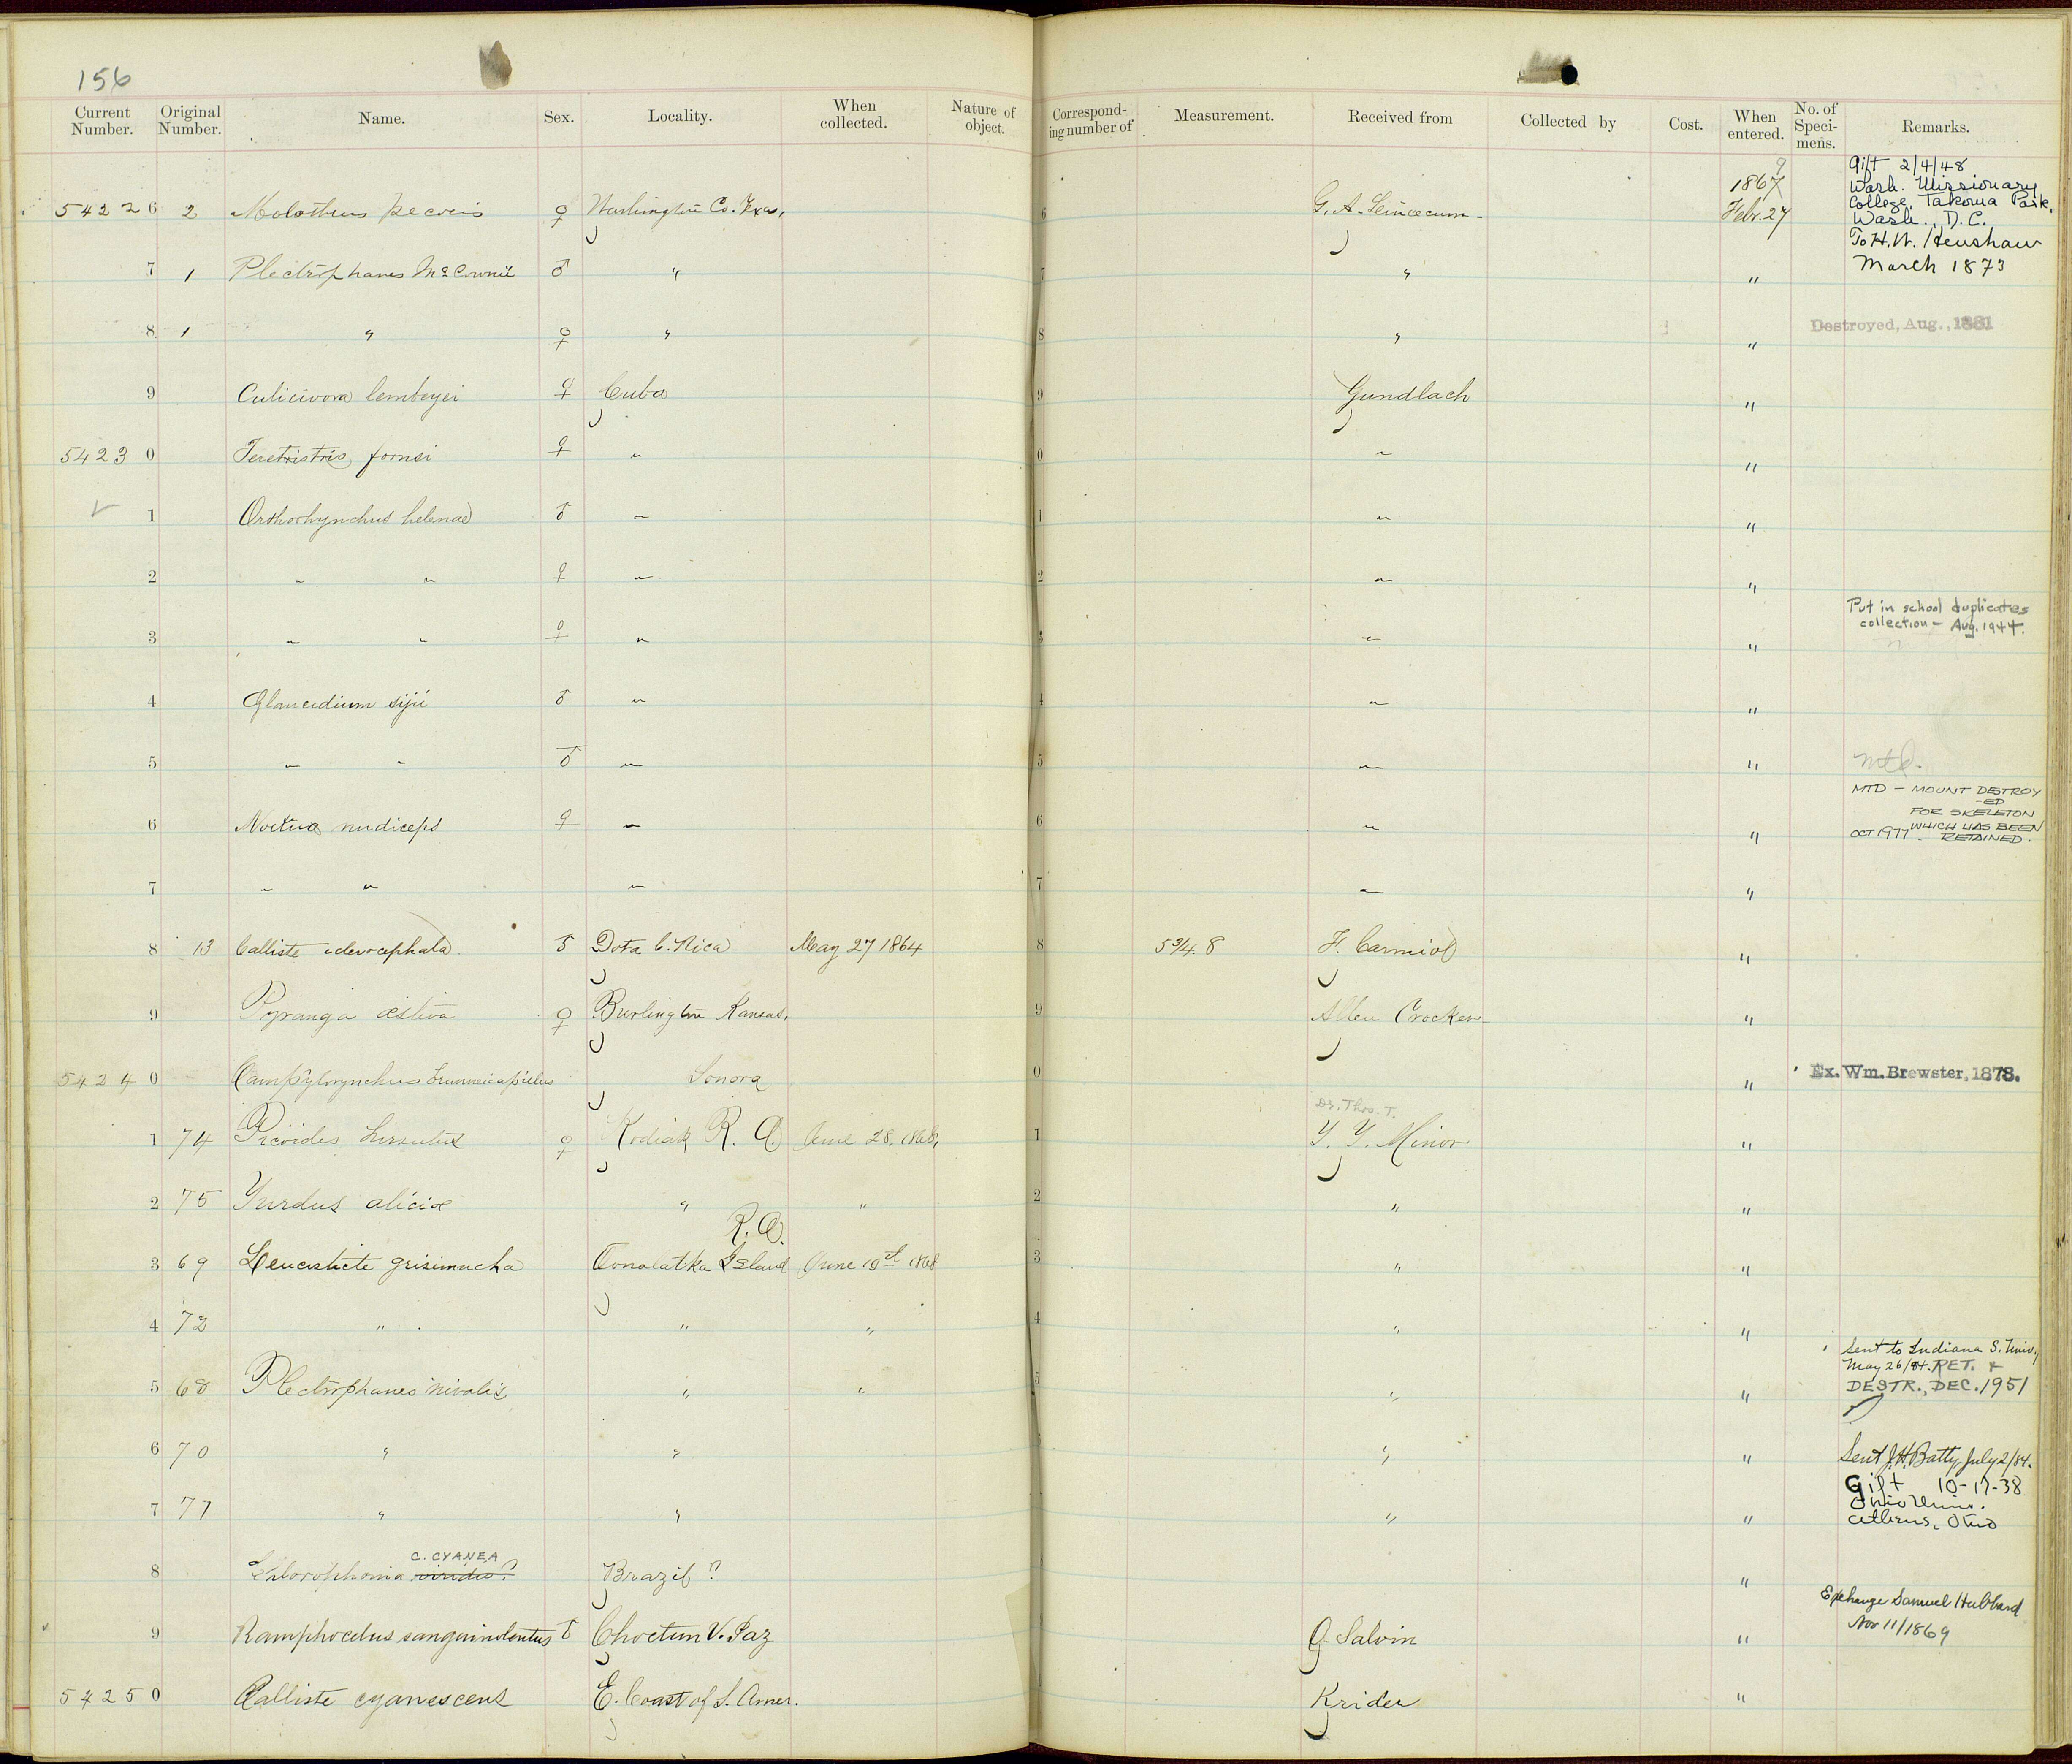 156
Current Number. Original Number. Name. Sex. Locality. When collected. Nature of object. Corresponding number of Measurement. Received from Collected by Cost. When entered. No. of Specimens. Remarks.
5422 6 2 Molothrus pecoris ♀ Washington Co. Texas, 6 G. A. Linncecum 1867 9 Febr. 27 Gift 2/4/48
Wash. Missionary
College, Takoma Park,
Wash., D.C.
To H. W. Henshaw
March 1873
7 1 Plectrophanes McCownii ♂ " 7 " "
8 1 " ♀ " 8 " " Destroyed, Aug., 1881
9 Culicivora lembeyei ♀ Cuba 9 Gundlach "
5423 0 Teretristris fornsi ♀ " 0 " "
1 Orthorhynchus helenae ♂ " 1 " "
2 " " ♀ " 2 " "
3 " " ♀ " 3 " " Put in school duplicates
collection – Aug. 1944.
4 Glaucidium siju ♂ " 4 " "
5 " " ♂ " 5 " " Mtd.
MTD – MOUNT DESTROY
-ED
FOR SKELETON
WHICH HAS BEEN
OCT 1977 RETAINED.
6 Noctua nudiceps ♀ " 6 " "
7 " " " 7 " "
8 13 Calliste icterocephala ♂ Dota C. Rica May 27 1864 8 5¾. 8 F. Carmiol "
9 Pyranga æstiva ♀ Burlington Kansas, 9 Allen Crocker "
5424 0 Campylorynchus brunneicapillus Sonora 0 " Ex. Wm. Brewster, 1878.
Dr. Thos. T.
1 74 Picoides hirsutus ♀ Kodiak R. A. June 28, 1868, 1 T. T. Minor "
2 75 Turdus aliciæ " " 2 " "
R. A.
3 69 Leucosticte grisinucha Oonalatka Island June 19th 1868 3 " "
4 72 " " " 4 " "
5 68 Plectrophanes nivalis " " 5 " " Sent to Indiana S. Univ.,
May 26/84. RET. &
DESTR., DEC. 1951
6 70 " " " " Sent J. H. Batty, July 2/84.
7 77 " " " " Gift 10-17-38
Ohio Univ.
Athens, Ohio
C. CYANEA
8 Chlorophonia viridis? Brazil ? "
9 Ramphocelus sanguinolentus ♂ Choctum V. Paz O. Salvin " Exchange Samuel Hubbard
Nov 11/1869
5425 0 Calliste cyanescens E. Coast of S. Amer. Krider "